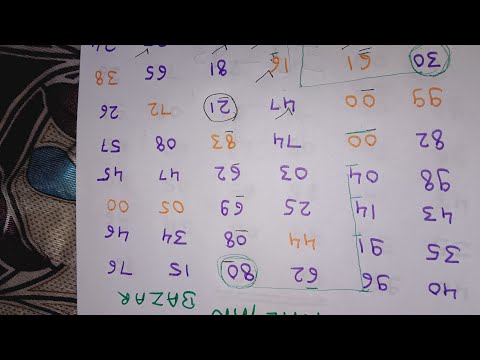 BAZAR
40 96 62 80 15 76
35 91 44 08 34 46
43 14 25 69 05 00
98 04 03 62 47 45
82 00 74 83 08 57
99 00 47 21 72 26
30 61 16 81 65 38